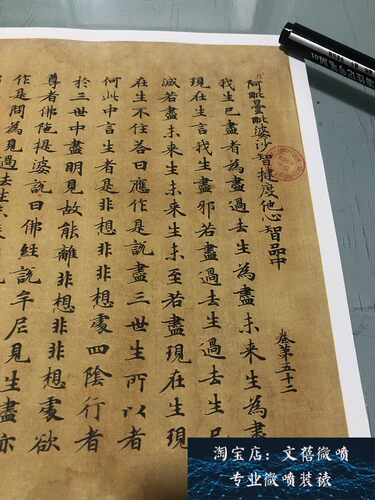 阿毗曇毗婆沙智揵度他心智品中 卷第五十二
我生已盡者為盡過去生為盡未來生為盡
現在生言我生盡邪若盡過去生過去生已
滅若盡未來生未來生未至若盡現在生現
在生不住答曰應作是說盡三世生所以者
何此中言生者是非想非非想處四陰行者
於三世中盡明見故能離非想非非想處欲
尊者佛陁提婆說曰佛經說牟尼見生盡亦
作是問為見過去生
淘宝店：文蓓微喷
专业微喷装裱